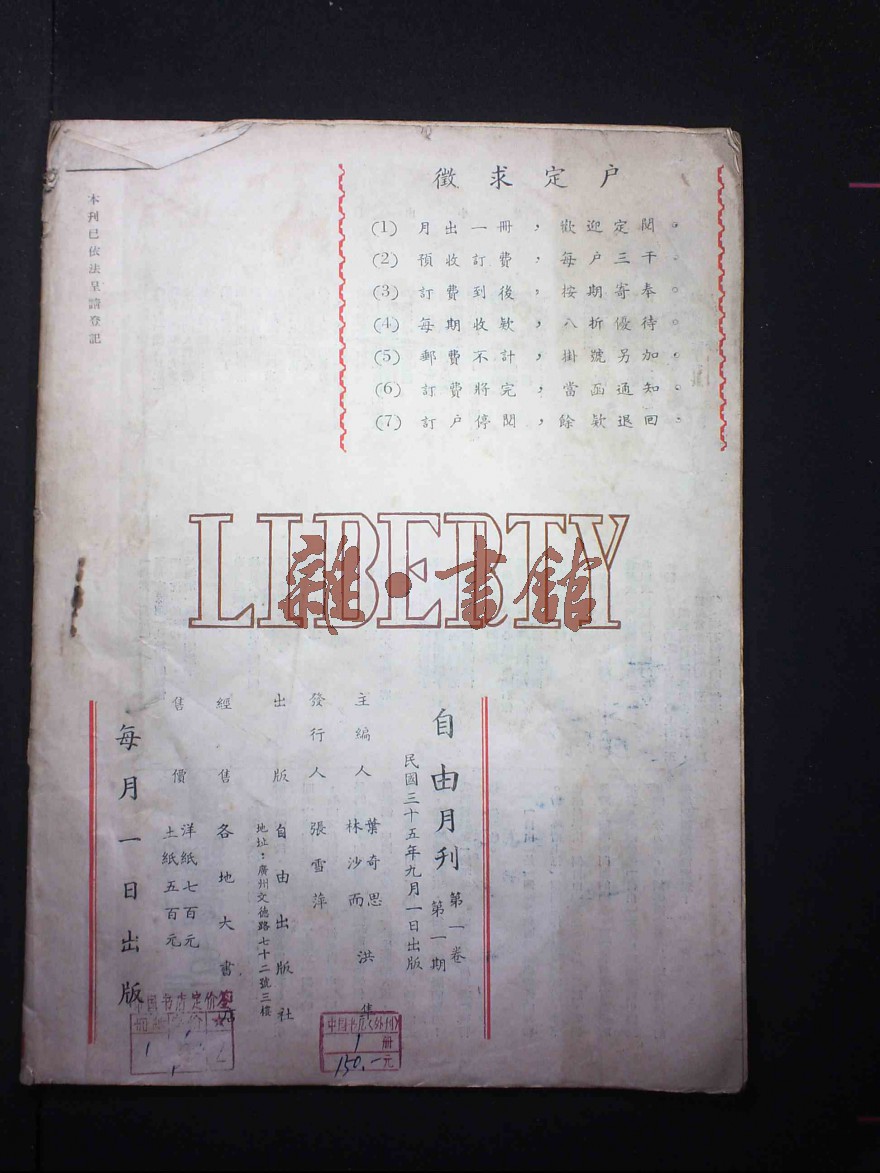 徵求定户
(1) 月出一冊，歡迎定閱。
(2) 預收訂費，每户三千。
(3) 訂費到後，按期寄奉。
(4) 每期收欵，八折優待。
(5) 郵費不計，掛號另加。
(6) 訂費將完，當函通知。
(7) 訂户停閱，餘欵退回。
本刊已依法呈請登記
LIBERTY
雜·書館
自由月刊 第一卷 第一期
民國三十五年九月一日出版
主編人 葉奇思 洪 林沙而
發行人 張雪萍
出版 自由出版社
地址：廣州文德路七十二號三樓
經售 各地大書店
售價 洋紙七百元
土紙五百元
每月一日出版
中国书店定价签
册
中国书店(外刊)
1 册
150.— 元